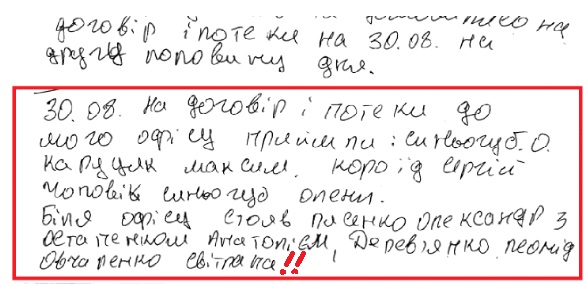 договір іпотеки на 30.08. на
другу половину дня.
30.08. на договір іпотеки до
мого офісу прийшли: синьогуб О.
каруцяк максим. короїд сергій
чоловік синьогуб олени.
Біля офісу стояв лисенко олександр з
остапенком Анатолієм, Дерев'янко леонід
Овчаренко світлана!!